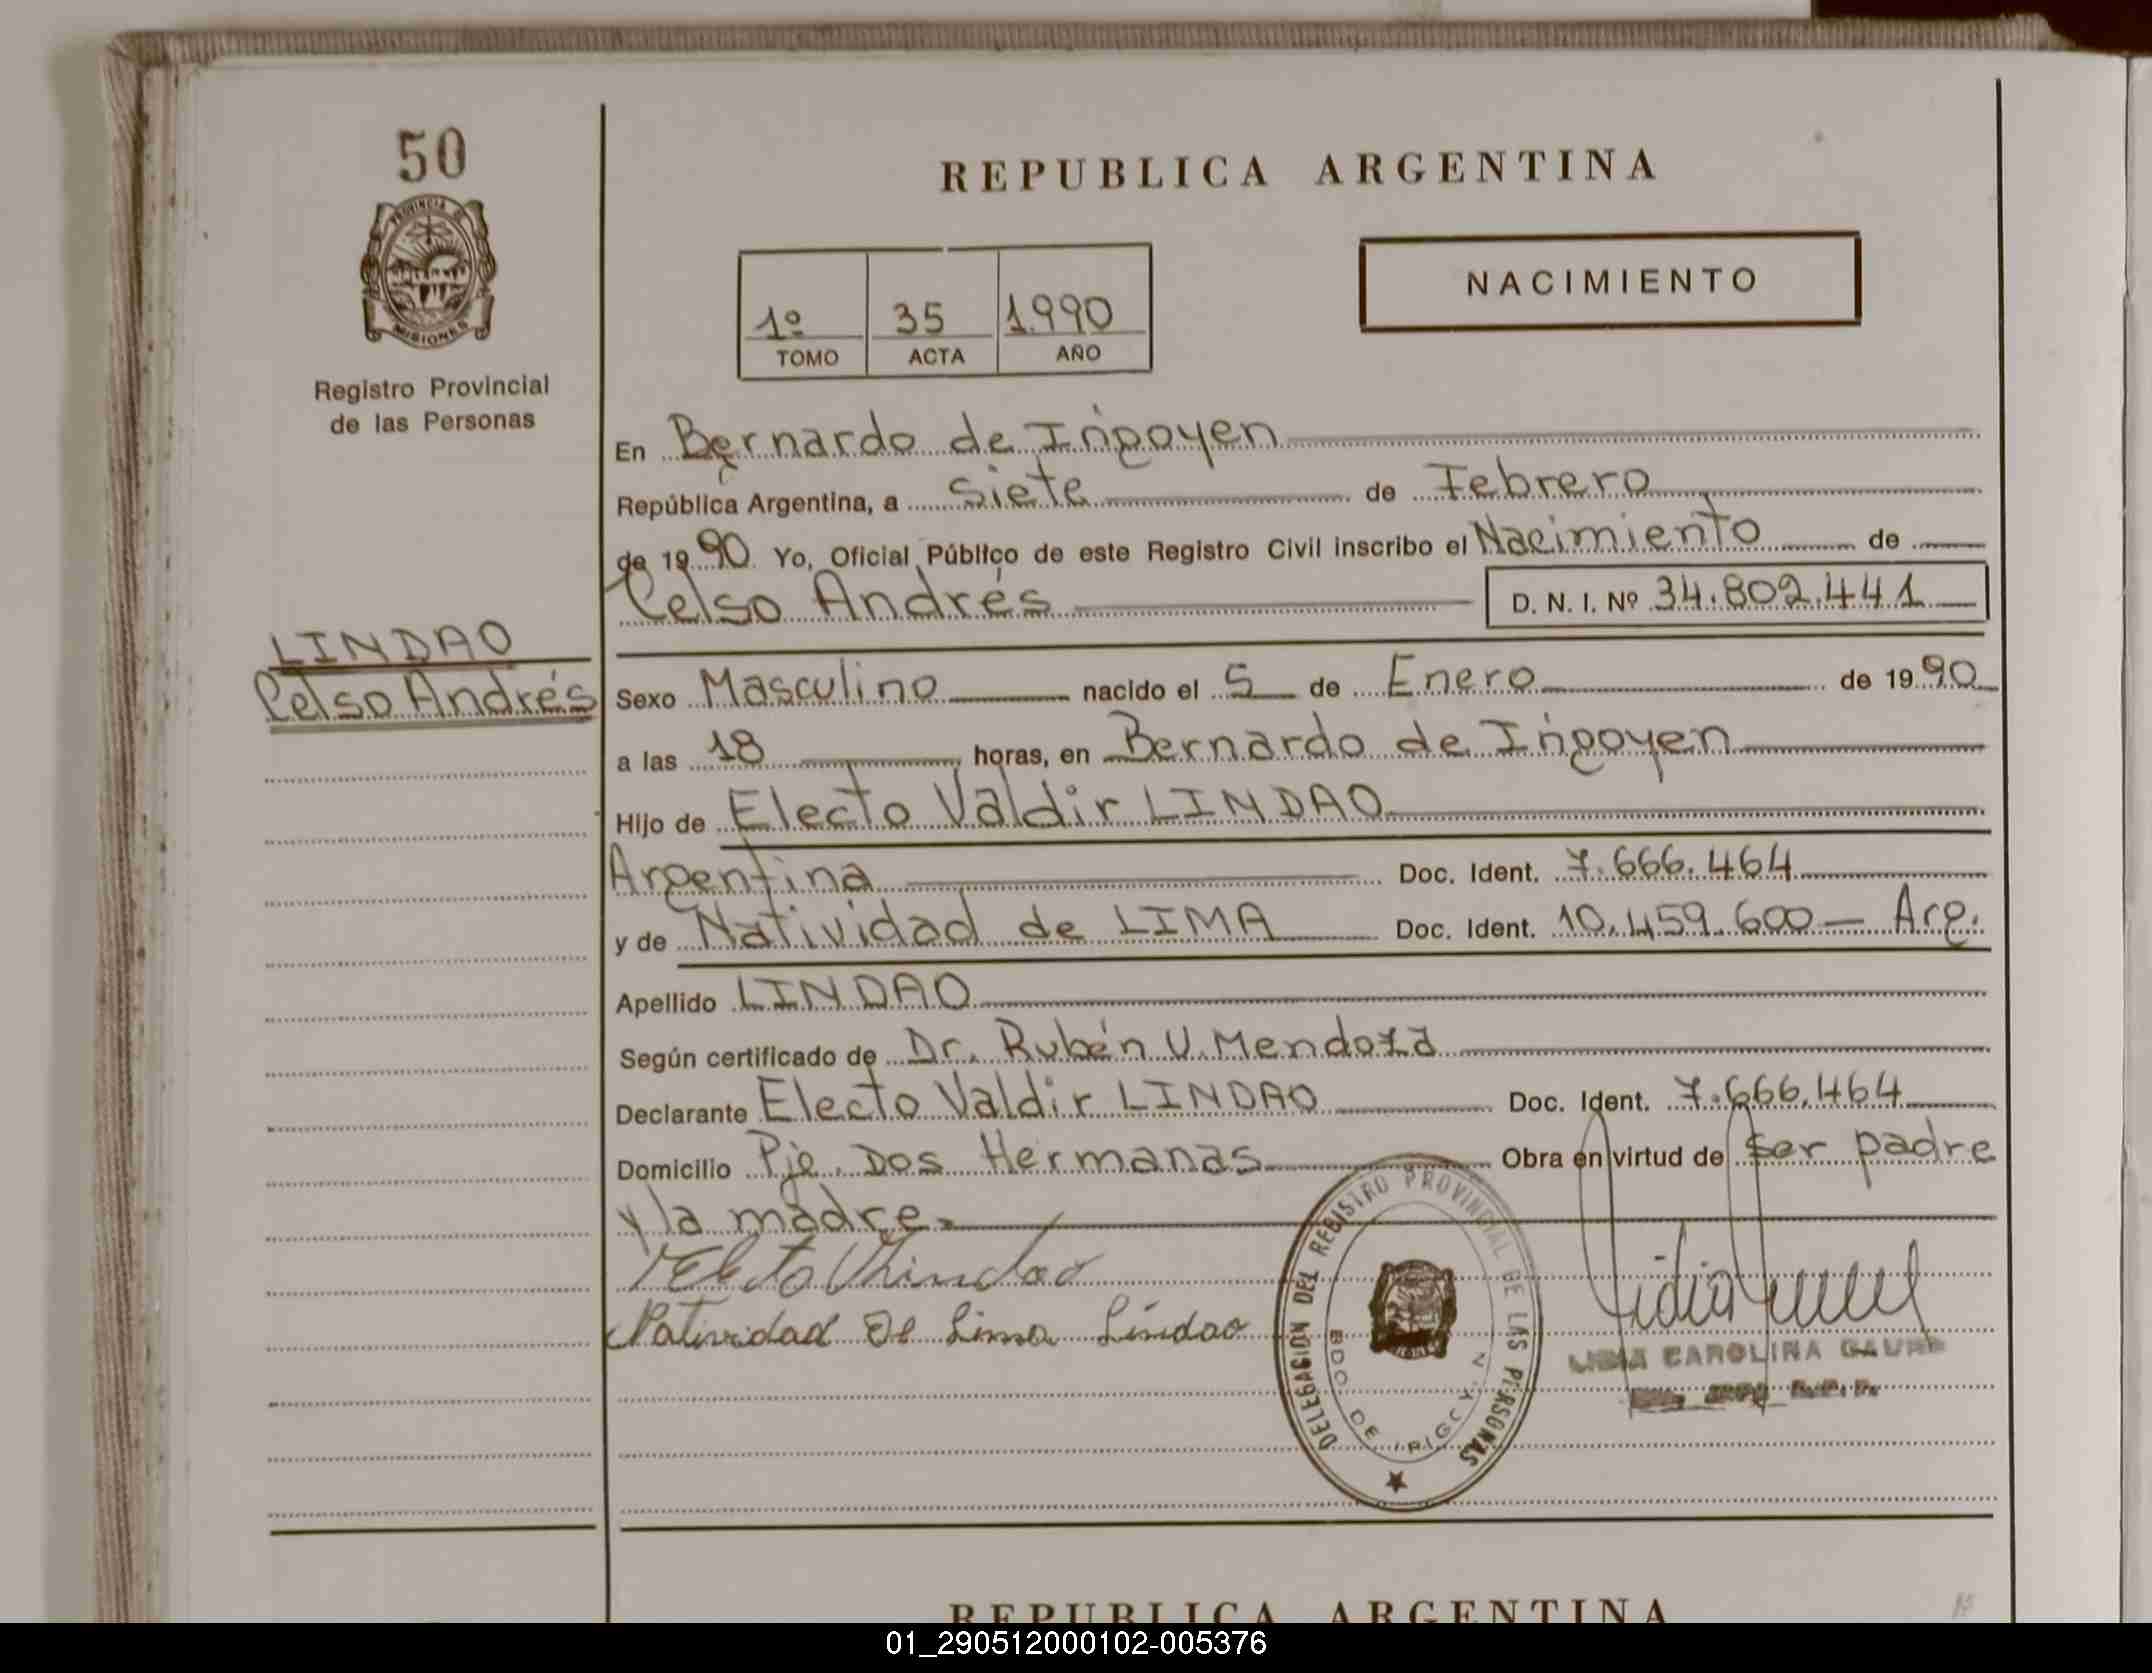 50
PROVINCIA DE
MISIONES
Registro Provincial
de las Personas
LINDAO
Celso Andrés
REPUBLICA ARGENTINA
NACIMIENTO
1º 35 1990
TOMO ACTA AÑO
En Bernardo de Irigoyen
República Argentina, a siete de Febrero
de 1990 Yo, Oficial Público de este Registro Civil inscribo el Nacimiento de
Celso Andrés D. N. I. Nº 34.802.441
Sexo Masculino nacido el 5 de Enero de 1990
a las 18 horas, en Bernardo de Irigoyen
Hijo de Electo Valdir LINDAO
Argentina Doc. Ident. 7.666.464
y de Natividad de LIMA Doc. Ident. 10.459.600 — Arg.
Apellido LINDAO
Según certificado de Dr. Rubén V. Mendoza
Declarante Electo Valdir LINDAO Doc. Ident. 7.666.464
Domicilio Pje. Dos Hermanas Obra en virtud de ser padre
y la madre.
Electo V Lindao
Natividad De Lima Lindao
DELEGACION DEL REGISTRO PROVINCIAL DE LAS PERSONAS
BDO DE IRIGOYEN
LIDIA CAROLINA
REPUBLICA ARGENTINA
01_290512000102-005376